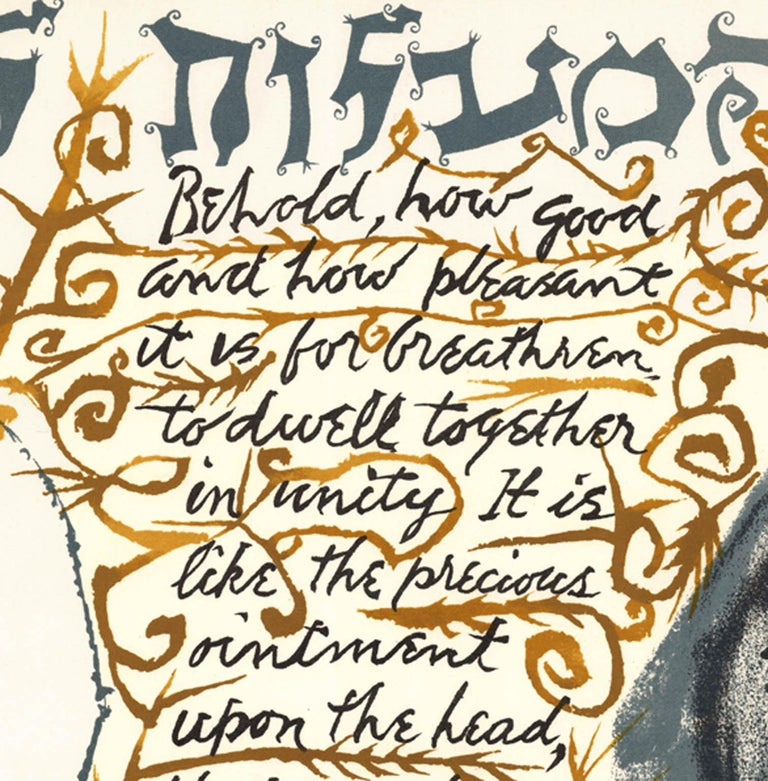 המעלות
Behold, how good
and how pleasant
it is for breathren
to dwell together
in unity It is
like the precious
ointment
upon the head,